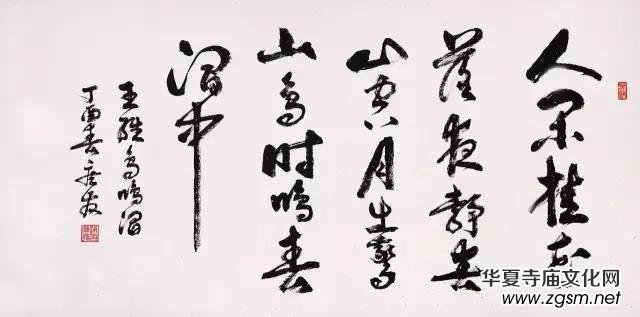 人闲桂花
落夜静春
山空月出惊
山鸟时鸣春
涧中
王维鸟鸣涧
丁酉春
华夏寺庙文化网
www.zgsm.net